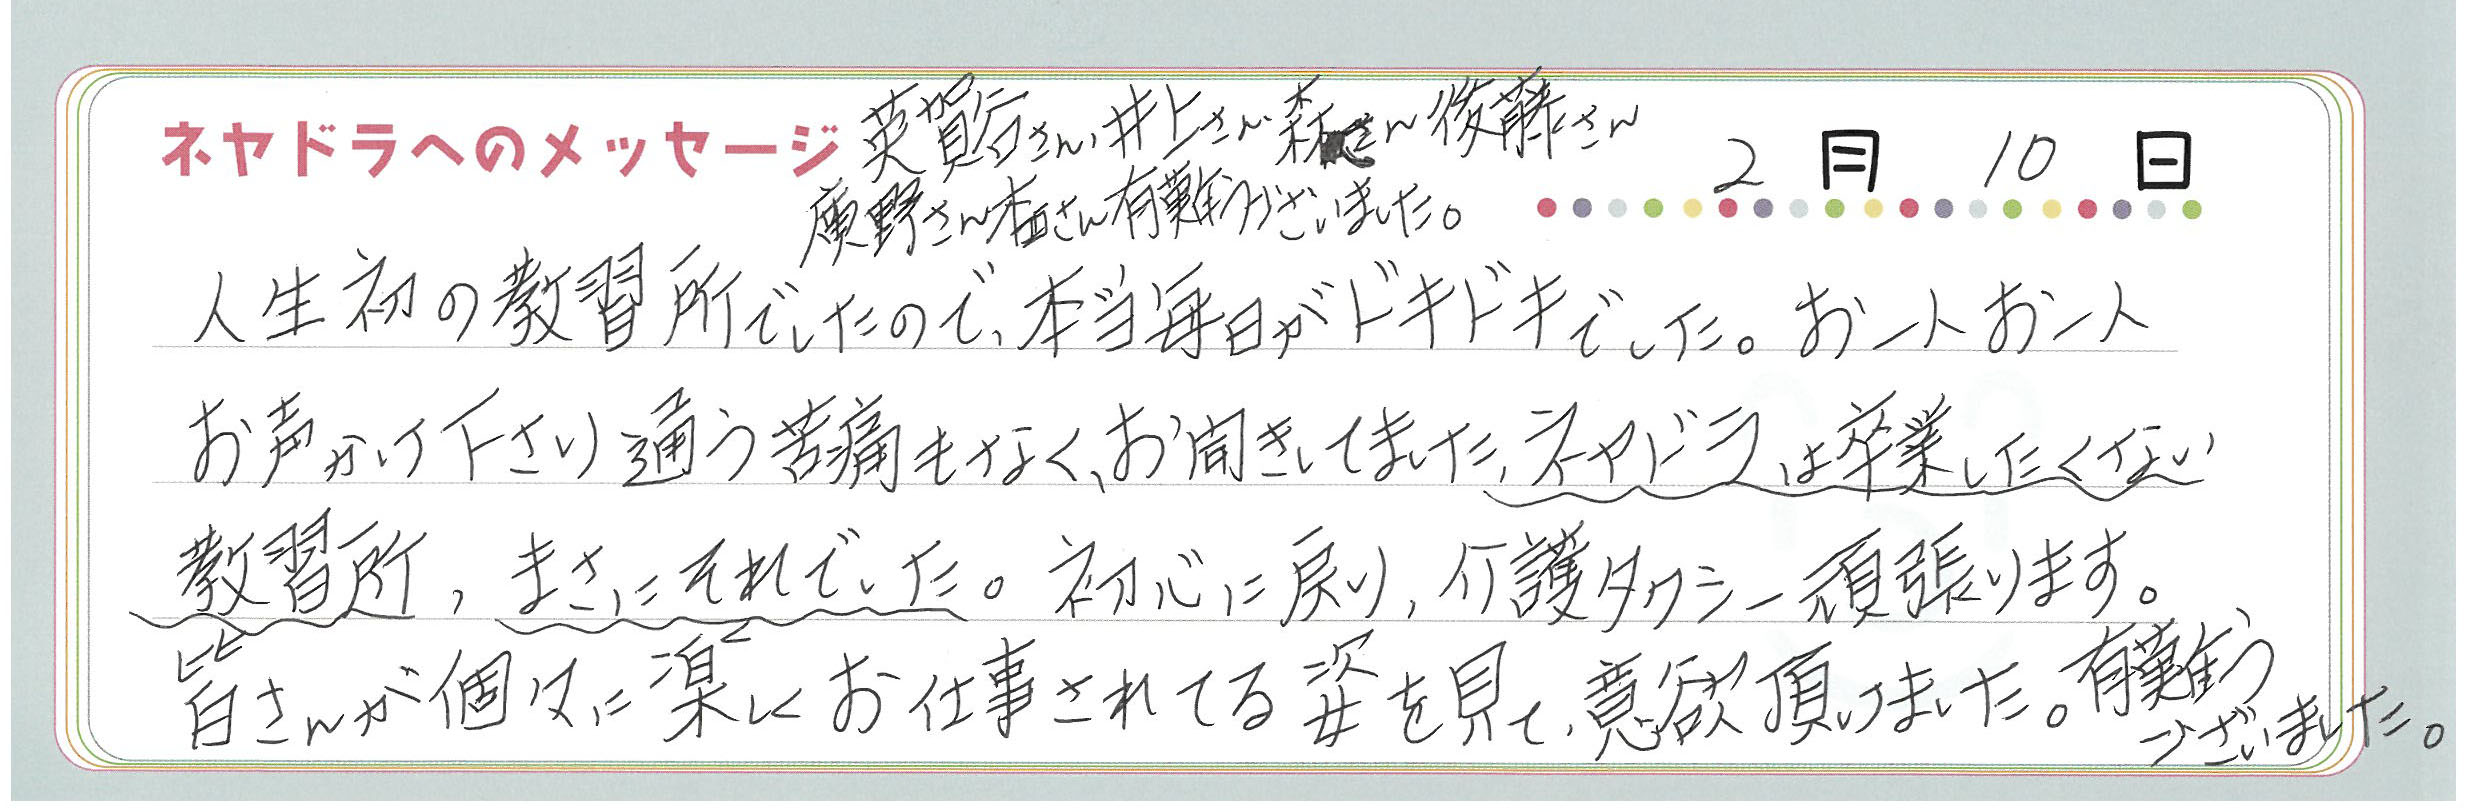 ネヤドラへのメッセージ
英賀谷さん、井上さん、森さん 後藤さん
廣野さん 杏さん有難うございました。
2月 10日
人生初の教習所でしたので、本当毎日がドキドキでした。お一人お一人
お声かけ下さり通う苦痛もなく、お聞きしてました、ネヤドラは卒業したくない
教習所、まさにそれでした。初心に戻り、介護タクシー頑張ります。
皆さんが個々に楽しくお仕事されてる姿を見て、意欲頂けました。有難う
ございました。